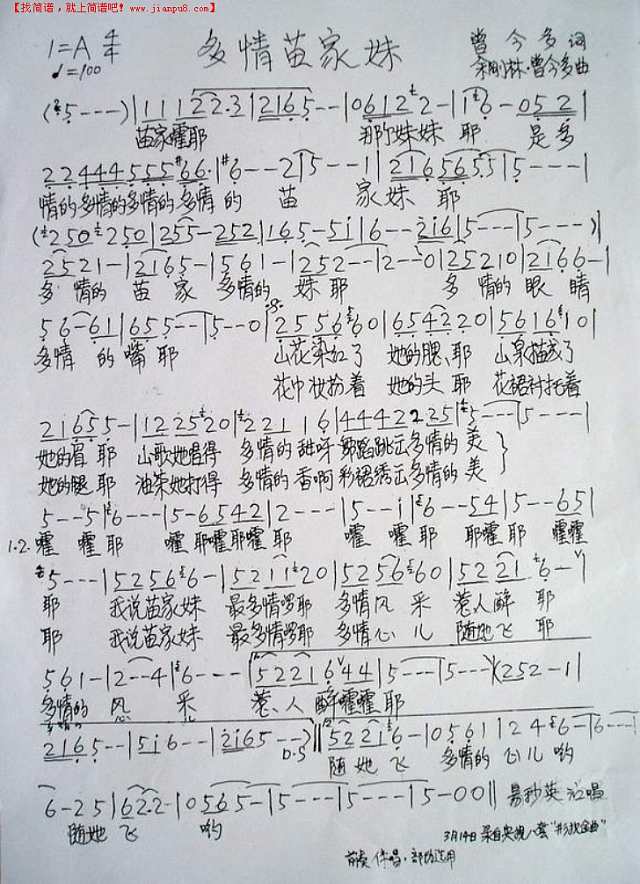 【找简谱，就上简谱吧! www.jianpu8.com】
1=A 4/4 多情苗家妹 曾今多词
♩=100 余刚林·曾今多曲
(5---)|1112 2·3|2165--|06122-|1 6-052|
苗家嚯耶 那个妹妹 耶 是多
22444555#66·|#6--2|5--1|216565 5|5---|
情的多情的多情的多情的 苗 家妹 耶
(250 250|255-252|165-5i|6--2i6|5---|5---)|
2521-|2165-|561-1|252--|2--0|25210|2166-|
多情的 苗 家 多情的 妹耶 多情的眼睛
56-61|655--|5--0|2556 60|654220|5616 10|
多情 的嘴耶 山花染红了 她的腮、耶 山泉描成了
花中妆扮着 她的头 耶 花裙衬托着
21655-|1225 20|221 16|4442235|5---|5---|
她的眉 耶 山歌她唱得 多情的甜呀 舞蹈跳云多情的 美
她的腿 耶 油茶她打得 多情的香啊 彩裙绣云多情的 美
5--5|6---|5-6542|2---|5--i|6--54|5--65|
1.2. 嚯 嚯耶 嚯耶嚯耶嚯耶 嚯 嚯耶 耶嚯耶 嚯嚯
5---|5256 6-|5211 20|5256 60|5221 6-|
耶 我说苗家妹 最多情啰耶 多情风 采 惹人醉 耶
耶 我说苗家妹 最多情啰耶 多情心 儿 随她飞 耶
561-|2--4|6---|52216 44|5---|5---)(252-1|
多情的 风 采 惹、人 醉嚯嚯耶
2165--|5i6--|2i65--)‖5221 6-|0561|24 6-|6---|
D·S
随她飞 多情的 心儿 哟
6-25|622-|0565-|5---|5---|5-00‖ 易秒英 演唱
随她 飞 哟
3月14日